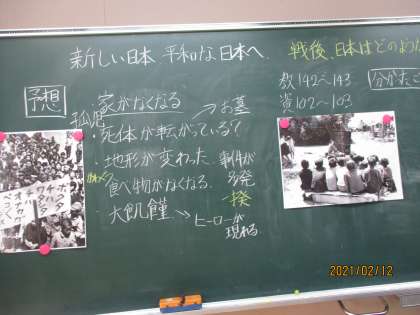 新しい日本 平和な日本へ 戦後、日本はどのよう
教142～143
資102～103
分かったこ
予想
孤児
・家がなくなる
→お墓
・死体が転がっている?
・地形が変わった
事件が
多発
食べ物がなくなる
一揆
・大飢饉→ヒーローが
現れる
ボクタチハ
ワタシタチ
オナカガ
ペコペコ
2021/02/12